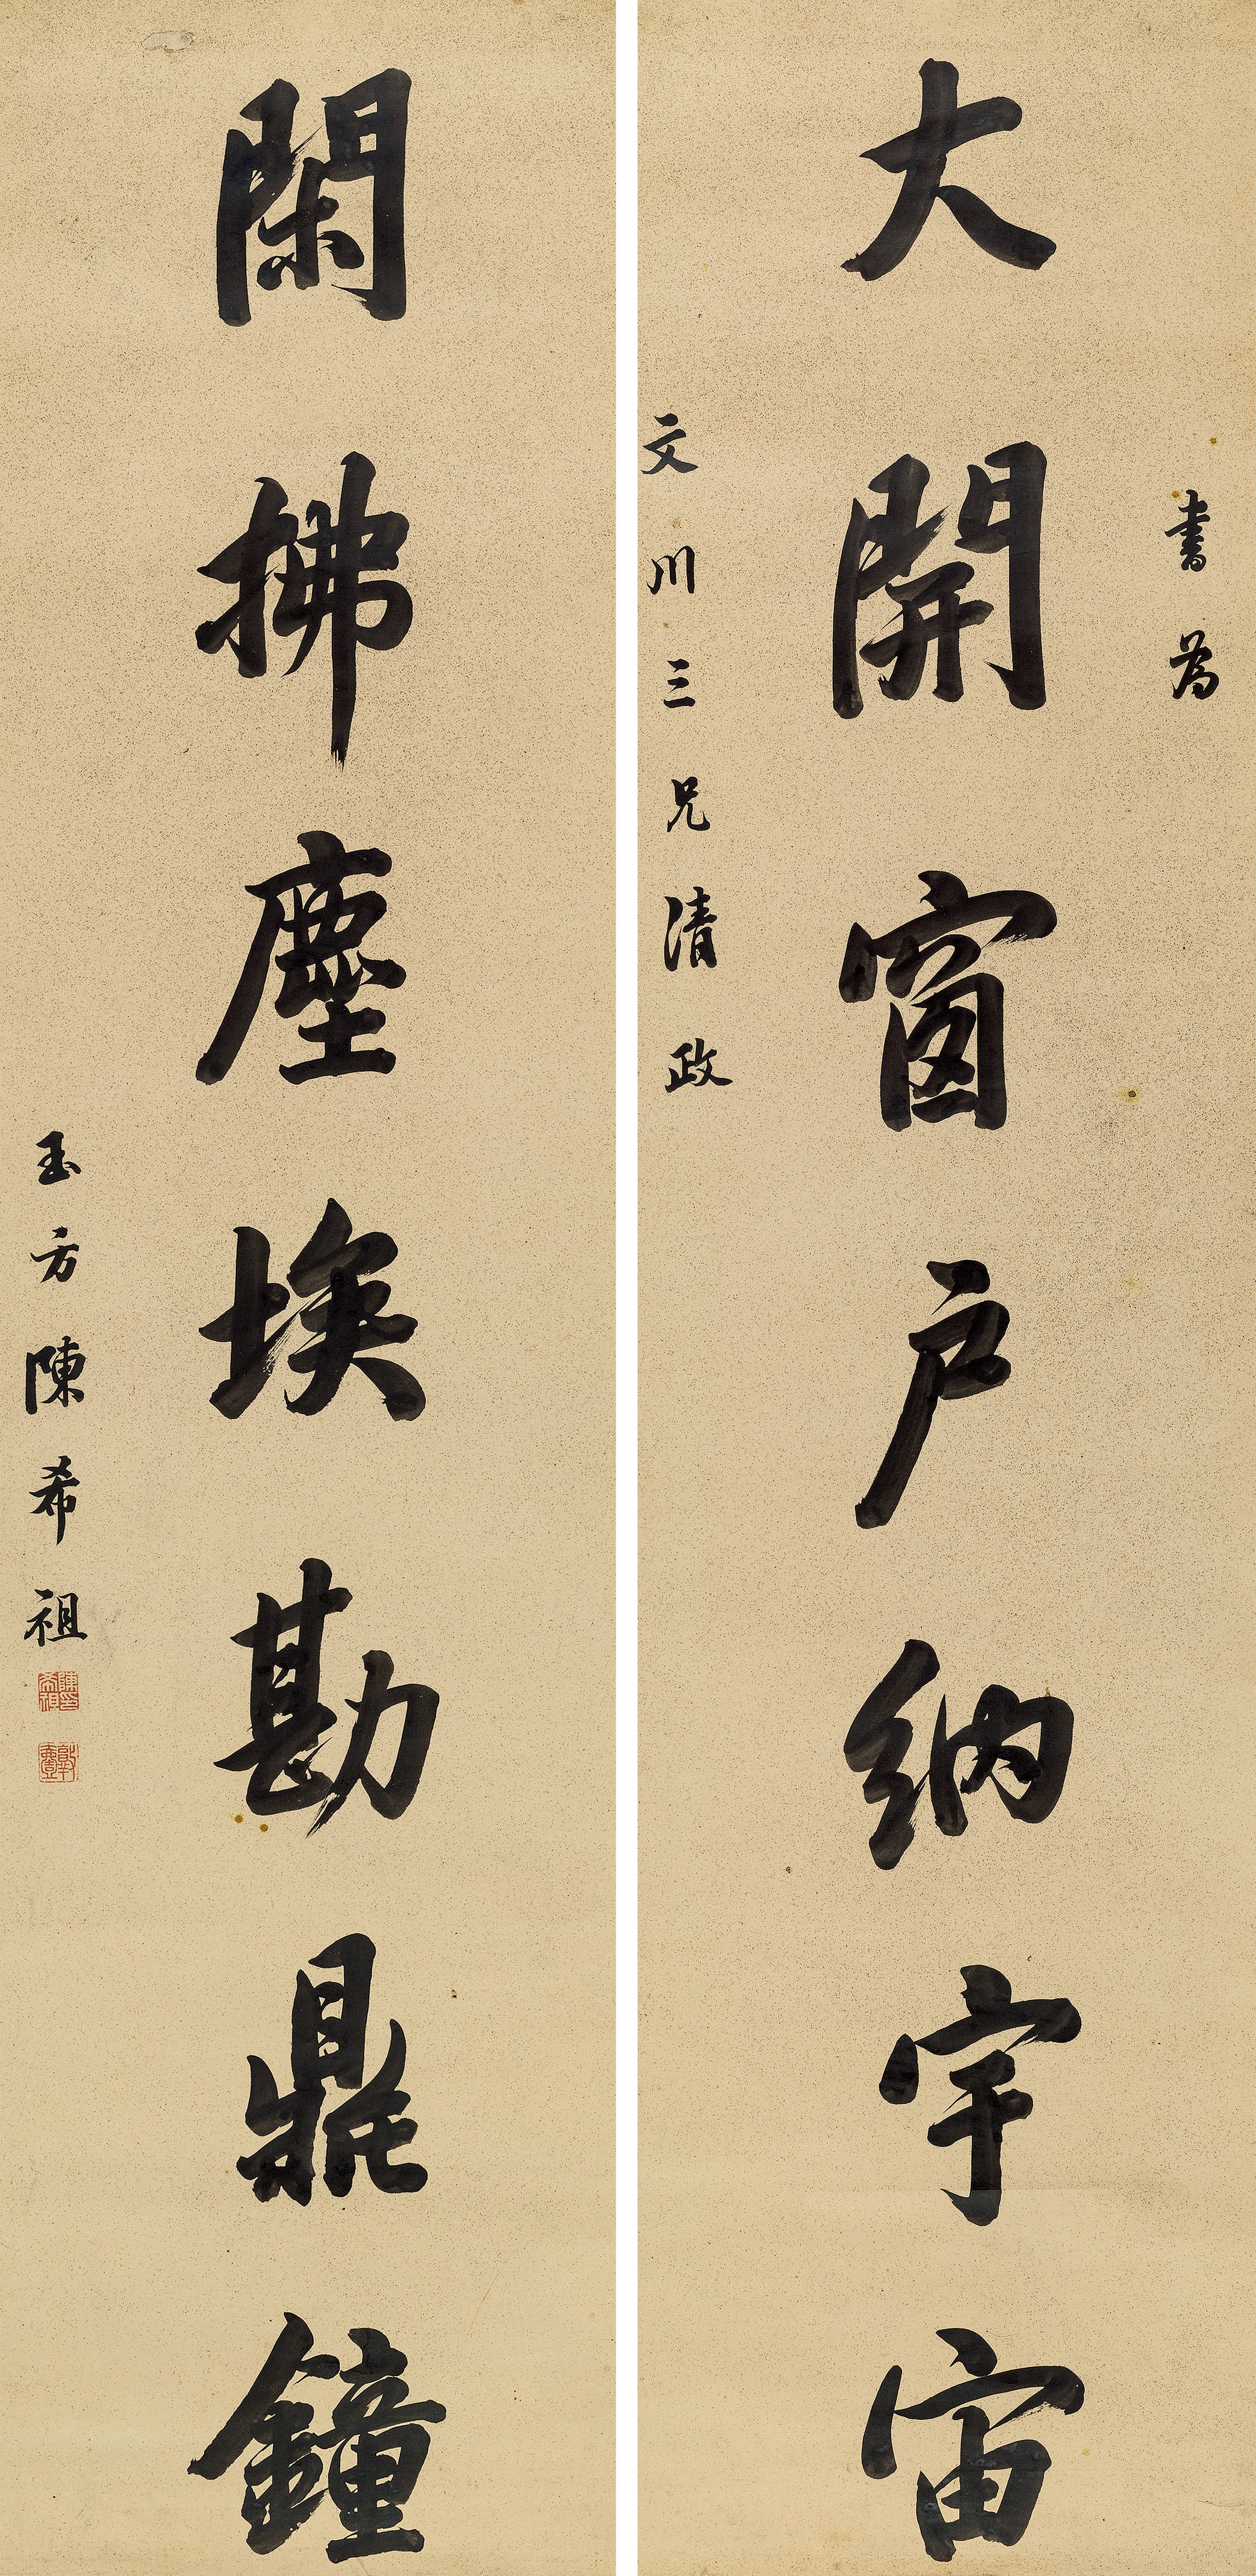 書為
大開窗戶納宇宙
文川三兄清政
閑拂塵埃勘鼎鐘
玉方陳希祖
陳希祖印